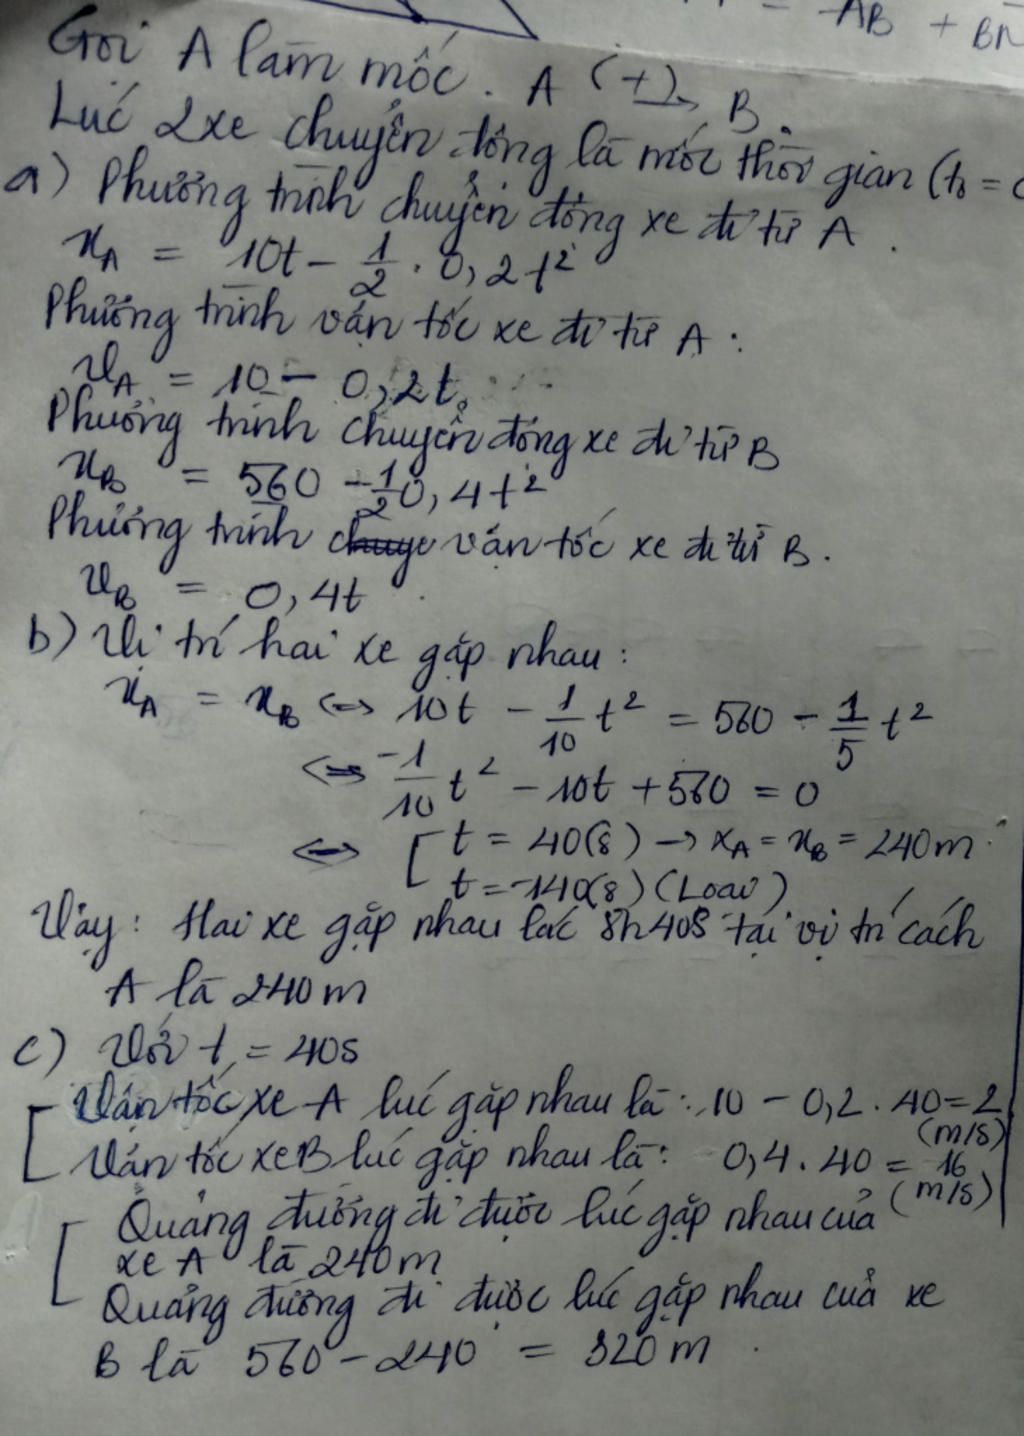 AB + BN
Gọi A làm mốc. A (+)→ B.
Lúc 2 xe chuyển động là mốc thời gian (t₀ = 0
a) Phương trình chuyển động xe đi từ A.
x_A = 10t - 1/2 . 0,2t²
Phương trình vận tốc xe đi từ A:
v_A = 10 - 0,2t.
Phương trình chuyển động xe đi từ B
x_B = 560 - 1/2 0,4t²
Phương trình vận tốc xe đi từ B.
v_B = 0,4t.
b) Vị trí hai xe gặp nhau:
x_A = x_B <=> 10t - 1/10 t² = 560 - 1/5 t²
<=> -1/10 t² - 10t + 560 = 0
<=> [ t = 40(s) → x_A = x_B = 240m.
t = -140(s) (Loại)
Vậy: Hai xe gặp nhau lúc 8h40s tại vị trí cách
A là 240m
c) Với t = 40s
Vận tốc xe A lúc gặp nhau là: 10 - 0,2 . 40 = 2
(m/s)
Vận tốc xe B lúc gặp nhau là: 0,4 . 40 = 16
(m/s)
Quãng đường đi được lúc gặp nhau của
xe A là 240m
Quãng đường đi được lúc gặp nhau của xe
B là 560 - 240 = 320m.